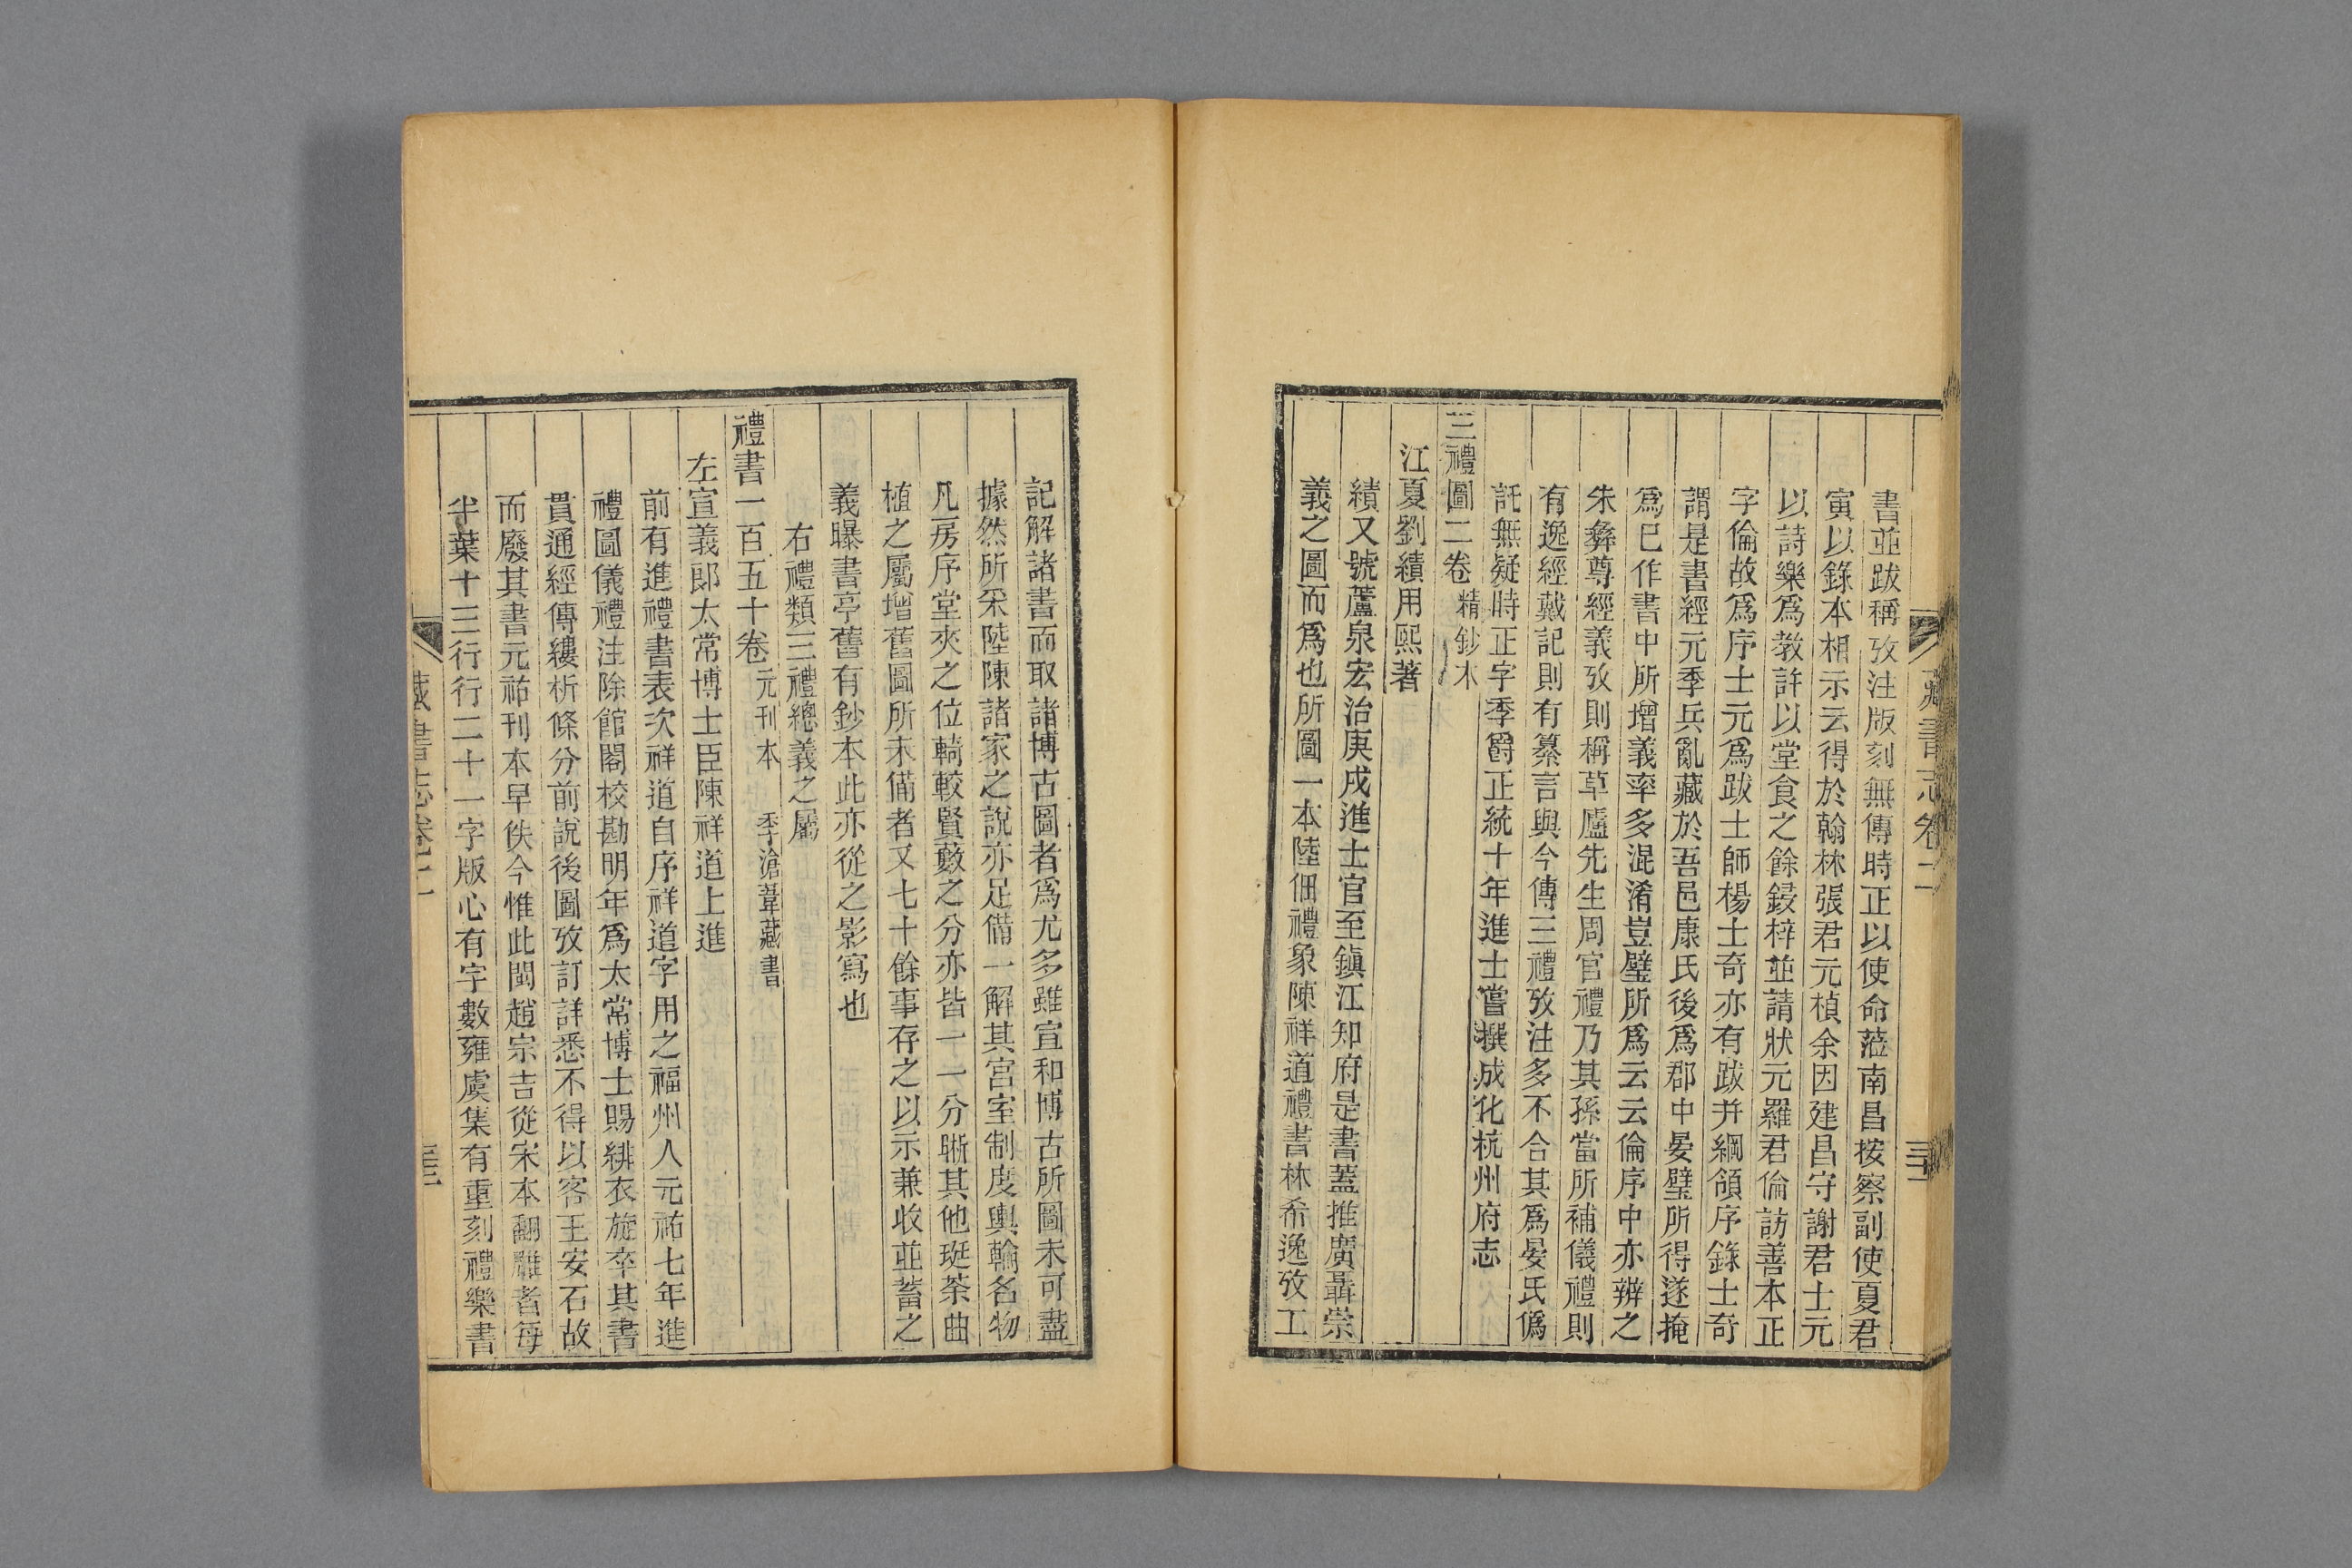 藏書志卷二
書並跋稱攷注版刻無傳時正以使命蒞南昌按察副使夏君
寅以錄本相示云得於翰林張君元楨余因建昌守謝君士元
以詩樂爲教許以堂食之餘鋟梓並請狀元羅君倫訪善本正
字倫故爲序士元爲跋士師楊士奇亦有跋并綱領序錄士奇
謂是書經元季兵亂藏於吾邑康氏後爲郡中晏璧所得遂掩
爲已作書中所增義率多混淆豈璧所爲云云倫序中亦辨之
朱彝尊經義攷則稱草廬先生周官禮乃其孫當所補儀禮則
有逸經戴記則有纂言與今傳三禮攷注多不合其爲晏氏僞
託無疑時正字季爵正統十年進士嘗撰成化杭州府志
三禮圖二卷 精鈔本
江夏劉績用熙著
績又號蘆泉宏治庚戌進士官至鎭江知府是書蓋推廣聶崇
義之圖而爲也所圖一本陸佃禮象陳祥道禮書林希逸攷工
記解諸書而取諸博古圖者爲尤多雖宣和博古所圖未可盡
據然所采陸陳諸家之說亦足備一解其宮室制度輿輪名物
凡房序堂夾之位輢較賢藪之分亦皆一一分晰其他珽荼曲
植之屬增舊圖所未備者又七十餘事存之以示兼收並蓄之
義曝書亭舊有鈔本此亦從之影寫也
右禮類三禮總義之屬
禮書一百五十卷 元刊本 季滄葦藏書
左宣義郎太常博士臣陳祥道上進
前有進禮書表次祥道自序祥道字用之福州人元祐七年進
禮圖儀禮注除館閣校勘明年爲太常博士賜緋衣旋卒其書
貫通經傳縷析條分前說後圖攷訂詳悉不得以客王安石故
而廢其書元祐刊本早佚今惟此閩趙宗吉從宋本翻雕者每
半葉十三行行二十一字版心有字數雍虞集有重刻禮樂書
藏書志卷二